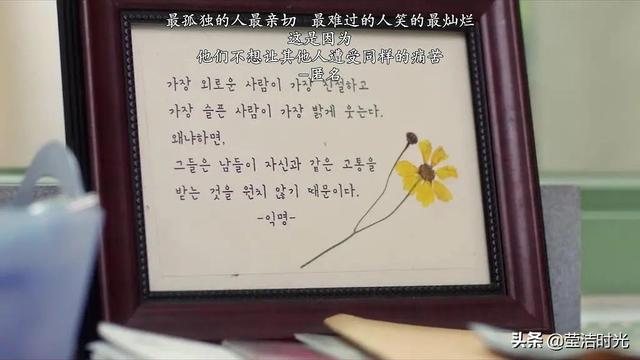 最孤独的人最亲切 最难过的人笑的最灿烂
这是因为
他们不想让其他人遭受同样的痛苦
-匿名
가장 외로운 사람이 가장 친절하고
가장 슬픈 사람이 가장 밝게 웃는다.
왜냐하면,
그들은 남들이 자신과 같은 고통을
받는 것을 원치 않기 때문이다.
-익명-
头条 @莹洁时光